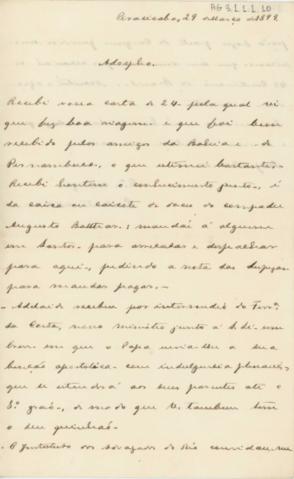 AG 3.1.1.10
Piracicaba, 29 de Março de 1899.
Adolpho.
Recebi vossa carta de 24 pela qual vi
que fez boa viagem e que foi bem
recebido pelos amigos da Bahia e de
Pernambuco, o que estimei bastante.
Recebi hontem o conhecimento junto, é
da caixa ou caixote de doces do compadre
Augusto; mandai á alguem
em Santos para arrecadar e despachar
para aqui, pedindo a nota das despezas
para mandar pagar.
- Adelaide recebeu por intermedio do
da Costa, nosso ministro junto á S. Sé um
em que o Papa envia-lhe a sua
benção apostolica com indulgencia plenaria,
que se estenderá aos seus parentes até o
3º gráo, de modo que V. tambem tem
o seu quinhão.
- O Instituto dos Advogados do Rio convidou-me